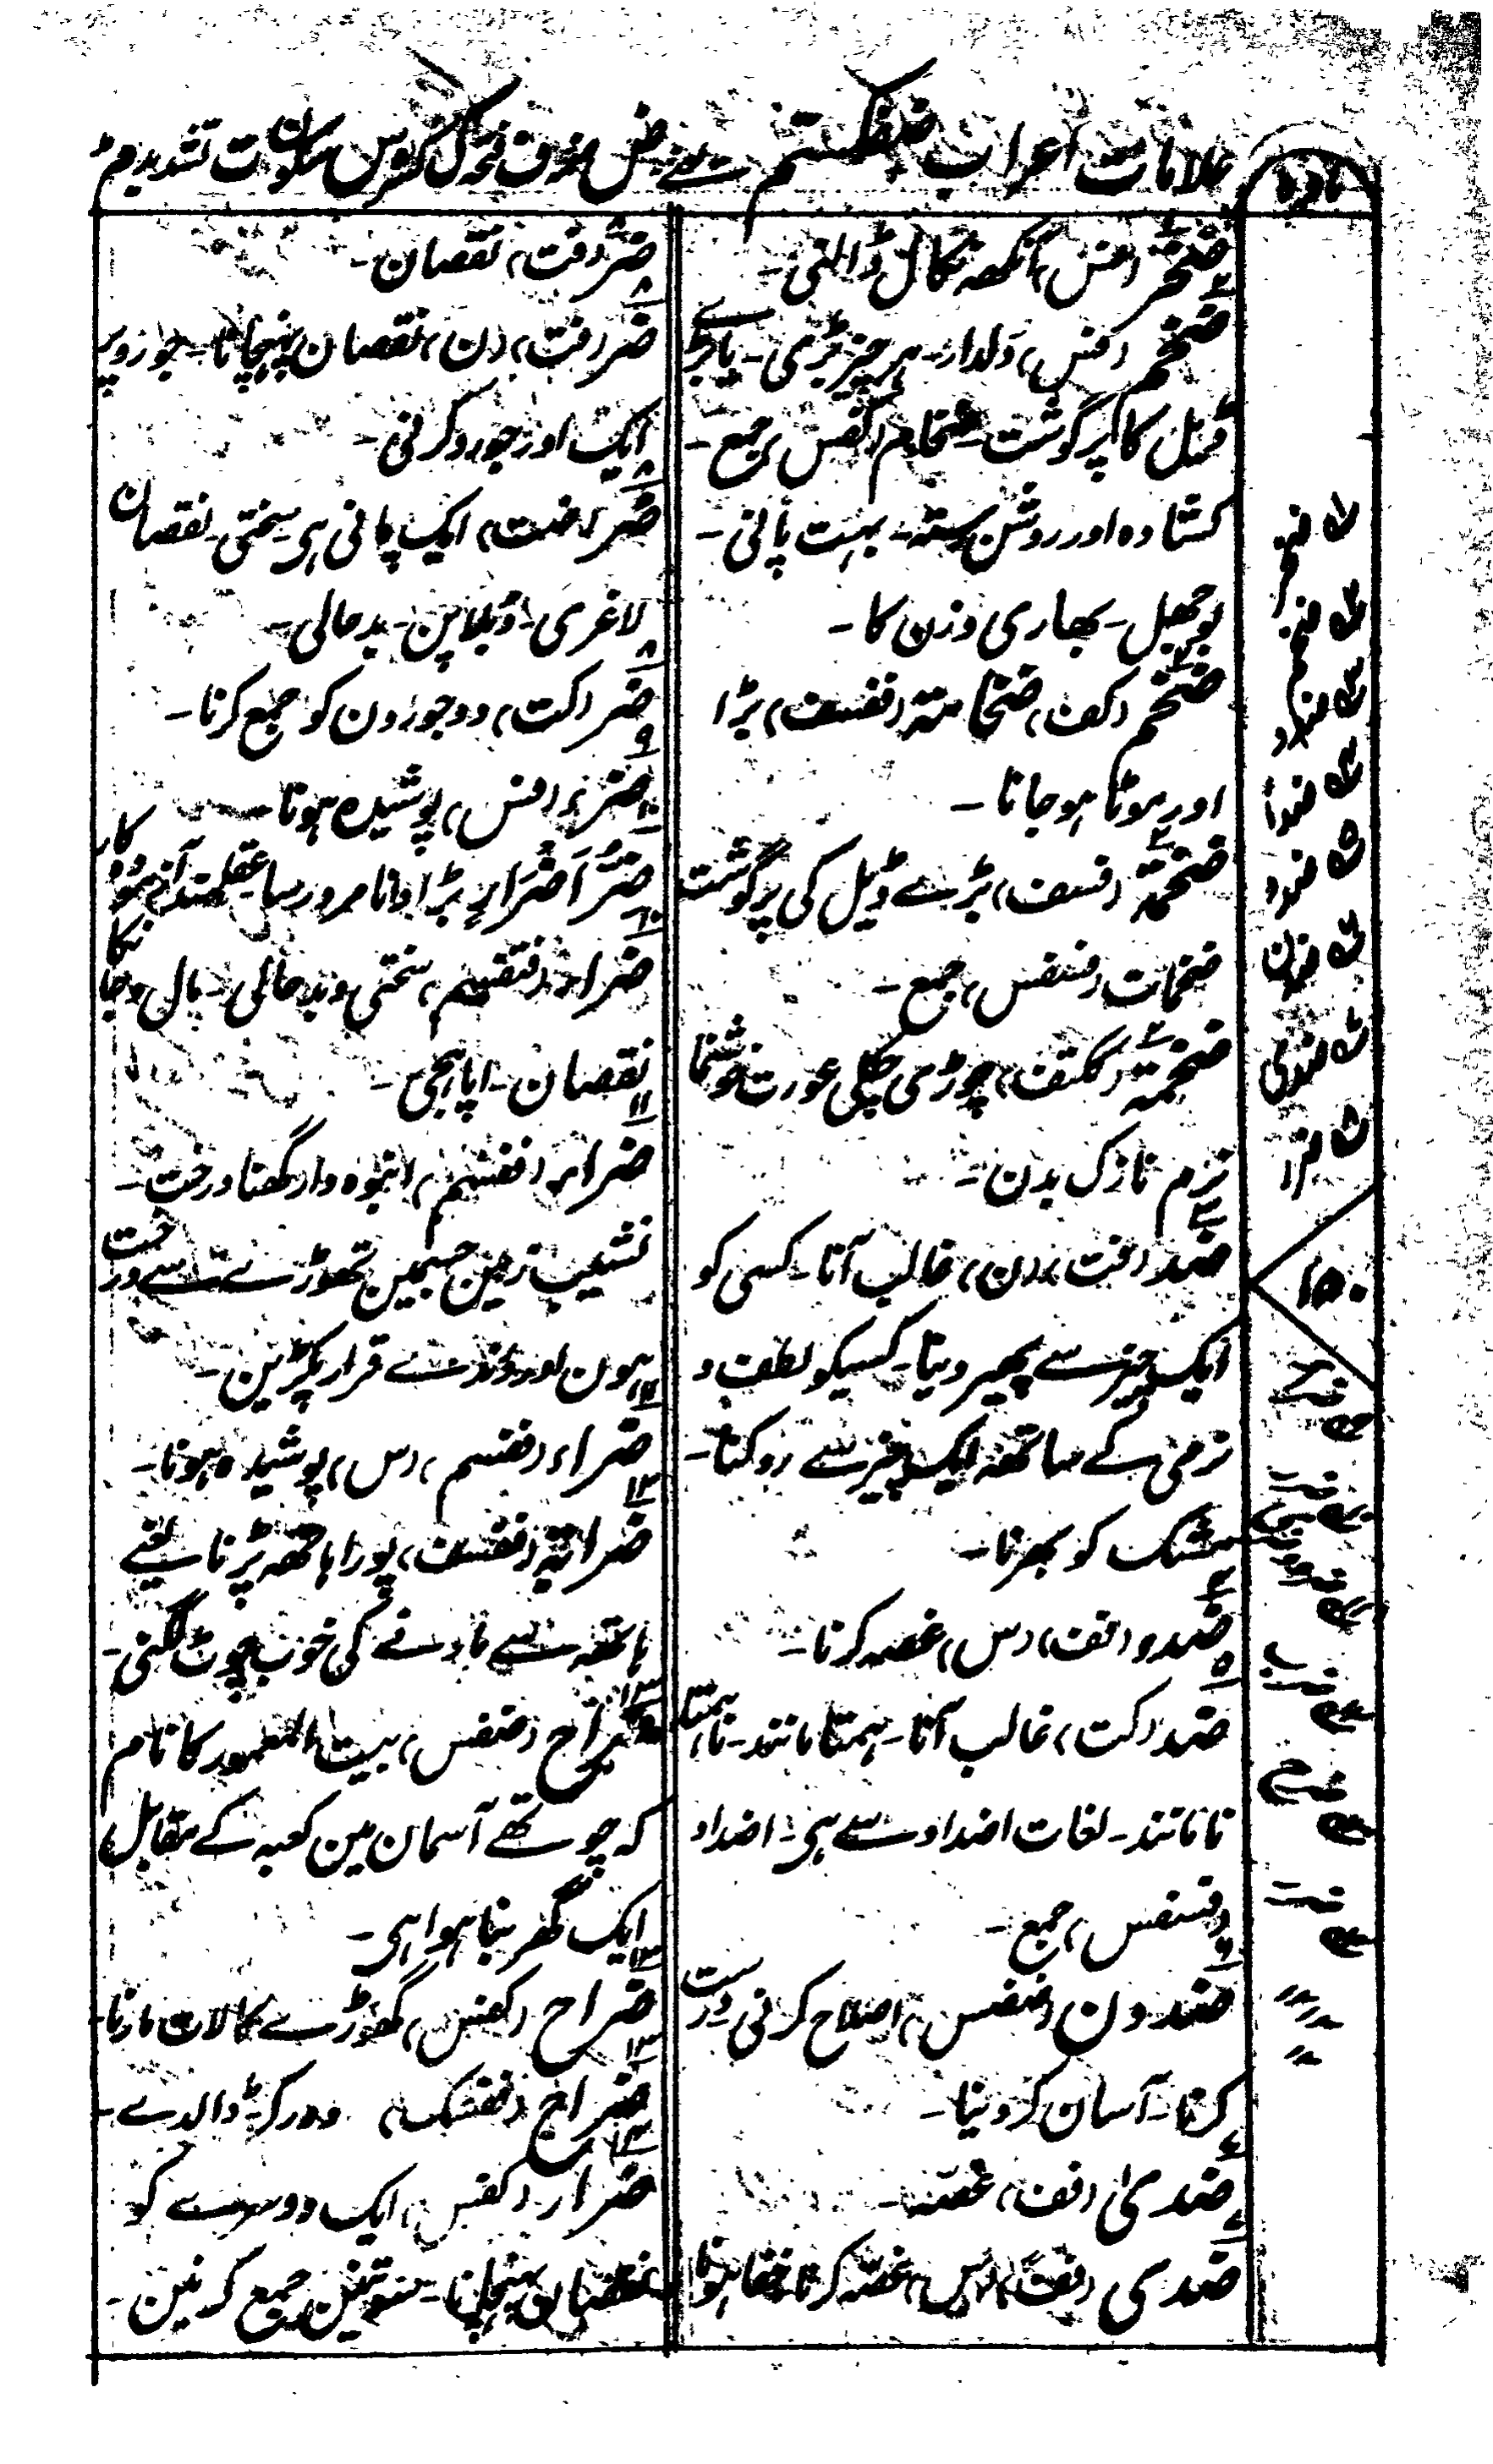 مادہا
علامات اعراب ضفکستم سے یعنے ض ضمہ ف فتحہ ک کسرہ س سکون ت تشدید م مد
ضخز (فس) آنکھہ نکال ڈالنی۔
ضخم (فس) دلدار۔ ہر چیز بڑی۔ یا بڑے
ڈیل کا پر گوشت۔ ضخام (کفس) جمع۔
کشادہ اور روشن رستہ۔ بہت پانی۔
بوجھل۔ بھاری وزن کا۔
ضخم (کف) ضخامتہ (ففسف) بڑا
اور موٹا ہو جانا۔
ضخمۃ (فسف) بڑے ڈیل کی پر گوشت
ضخمات (فسفس) جمع۔
ضخمۃ (ککتف) چوڑی چکلی عورت خوشنما
نرم نازک بدن۔
ضد (فت) (ن) غالب آنا۔ کسی کو
ایک چیز سے پھیر دینا۔ کسیکو لطف و
نرمی کے ساتھہ ایک چیز سے روکنا۔
مشک کو بھرنا۔
ضدد (فف) (س) غصہ کرنا۔
ضد (کت) غالب آنا۔ ہمتا مانند۔ نا ہمتا
نا مانند۔ لغات اضداد سے ہی۔ اضداد
(فسفس) جمع۔
ضدون (ففس) اصلاح کرنی درست
کرنا۔ آسان کر دینا۔
ضدیٰ (فف) غصہ۔
ضدی (فف) (س) غصہ کرنا خفا ہونا
ضر (فت) نقصان۔
ضر (فت) (ن) نقصان پہنچانا۔ جورو پر
ایک اور جورو کرنی۔
ضر (ضت) ایک پانی ہی۔ سختی۔ نقصان
لاغری۔ دبلا پن۔ بد حالی۔
ضر (کت) دو جورون کو جمع کرنا۔
ضرء (فس) پوشیدہ ہونا۔
ضرُّ اَضْرَارٍ بڑا دانا مرد رسا عقلمند آزمودہ کار
ضراء (فتفسم) سختی و بد حالی۔ مال و جان کا
نقصان۔ اپاہجی۔
ضراء (ففسم) انبوہ دار گھنا درخت۔
نشیب زمین جسمین تھوڑے سے درخت
ہون اور درندے قرار پکڑین۔
ضراء (ففسم) (س) پوشیدہ ہونا۔
ضراتہ (ففسف) پورا ہاتھہ پڑنا یعنے
ہاتھہ سے مارنے کی خوب چوٹ لگنی۔
ضراح (ضفس) بیت المعمور کا نام
کہ چوتھے آسمان مین کعبہ کے مقابل
ایک گھر بنا ہوا ہی۔
ضراح (کفس) گھوڑے کا لات مارنا۔
ضراح (ففسک) دور کر۔ ڈالدے۔
ضرار (کفس) ایک دوسرے کو
نقصان پہنچانا۔ سوتین جمع کرنین۔
ضخز
ضخم
ضداد
ضدا
ضدد
ضدن
ضدی
ضرا
۱۵۰